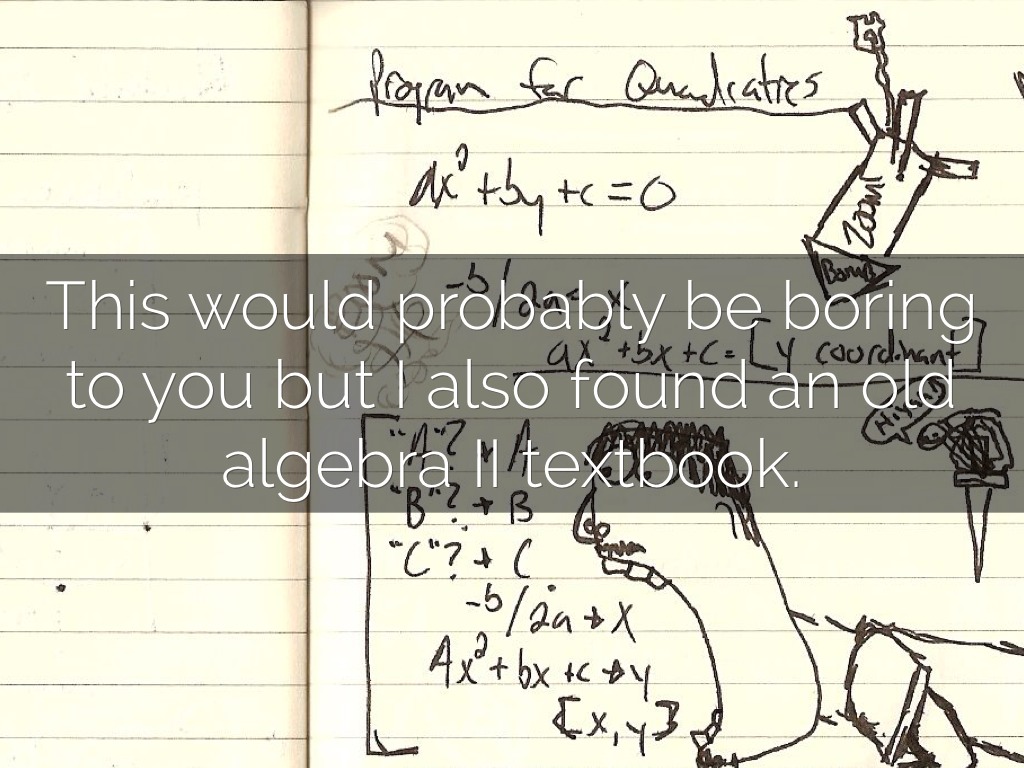 Program for Quadratics
ax²+by+c=0
Zoom!
Bomb
-b/2a→x
ax²+bx+c=[y coordinant]
This would probably be boring
to you but I also found an old
algebra II textbook.
"A"?→A
"B"?→B
"C"?→C
-b/2a→X
Ax²+bx+c→y
[x,y]